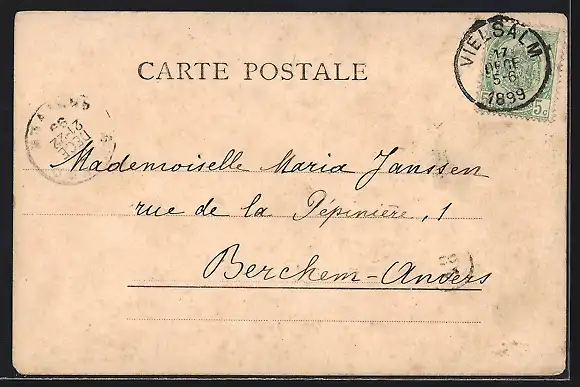 VIELSALM
17
DECE
5-6
1899
CARTE POSTALE
5c
Mademoiselle Maria Janssen
rue de la Pépinière, 1
Berchem-Anvers